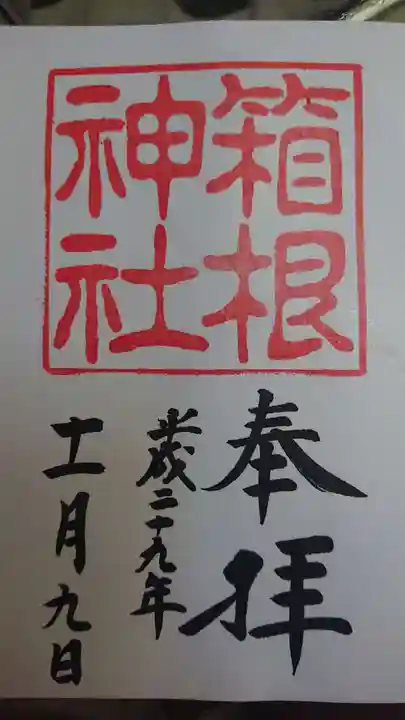 箱根
神社
奉拝
歳二十九年
十一月九日